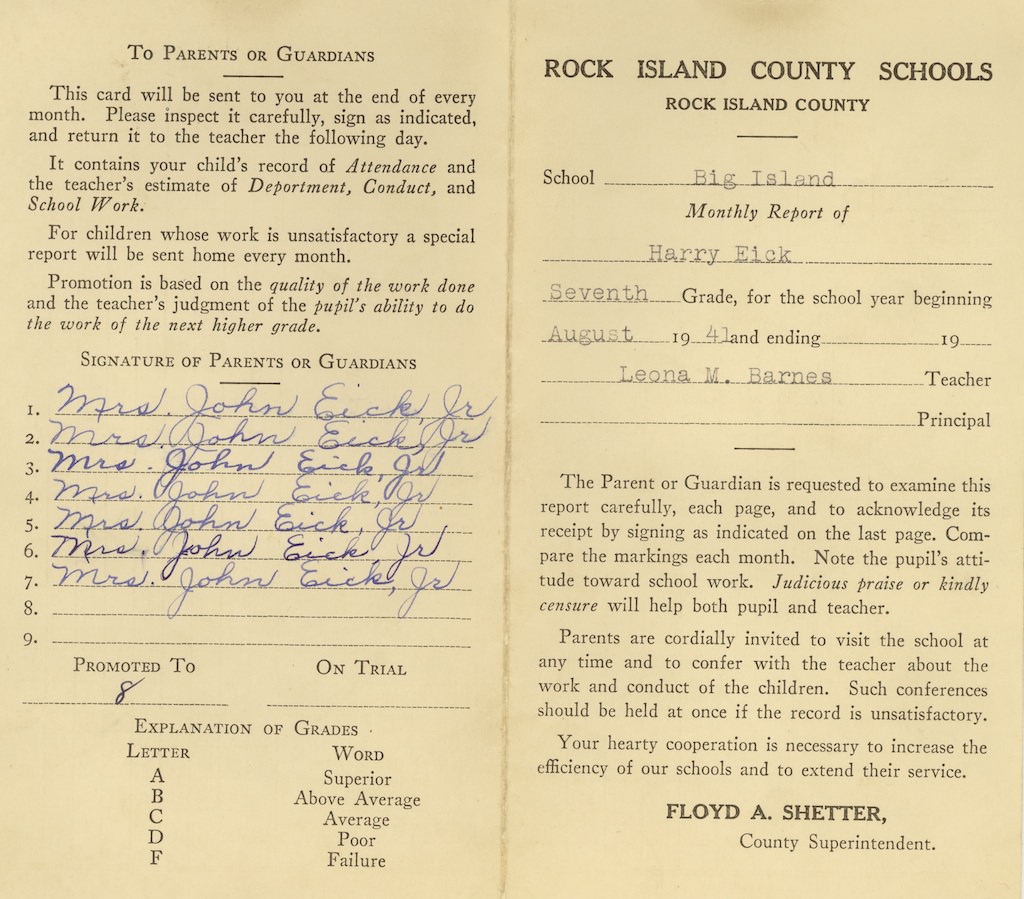 To Parents or Guardians
This card will be sent to you at the end of every
month. Please inspect it carefully, sign as indicated,
and return it to the teacher the following day.
It contains your child's record of Attendance and
the teacher's estimate of Deportment, Conduct, and
School Work.
For children whose work is unsatisfactory a special
report will be sent home every month.
Promotion is based on the quality of the work done
and the teacher's judgment of the pupil's ability to do
the work of the next higher grade.
Signature of Parents or Guardians
1. Mrs. John Eick, Jr
2. Mrs. John Eick, Jr
3. Mrs. John Eick, Jr
4. Mrs. John Eick, Jr
5. Mrs. John Eick, Jr
6. Mrs. John Eick, Jr
7. Mrs. John Eick, Jr
8.
9.
Promoted To On Trial
8
Explanation of Grades
Letter Word
A Superior
B Above Average
C Average
D Poor
F Failure
ROCK ISLAND COUNTY SCHOOLS
ROCK ISLAND COUNTY
School Big Island
Monthly Report of
Harry Eick
Seventh Grade, for the school year beginning
August 19 41 and ending 19
Leona M. Barnes Teacher
Principal
The Parent or Guardian is requested to examine this
report carefully, each page, and to acknowledge its
receipt by signing as indicated on the last page. Com-
pare the markings each month. Note the pupil's atti-
tude toward school work. Judicious praise or kindly
censure will help both pupil and teacher.
Parents are cordially invited to visit the school at
any time and to confer with the teacher about the
work and conduct of the children. Such conferences
should be held at once if the record is unsatisfactory.
Your hearty cooperation is necessary to increase the
efficiency of our schools and to extend their service.
FLOYD A. SHETTER,
County Superintendent.